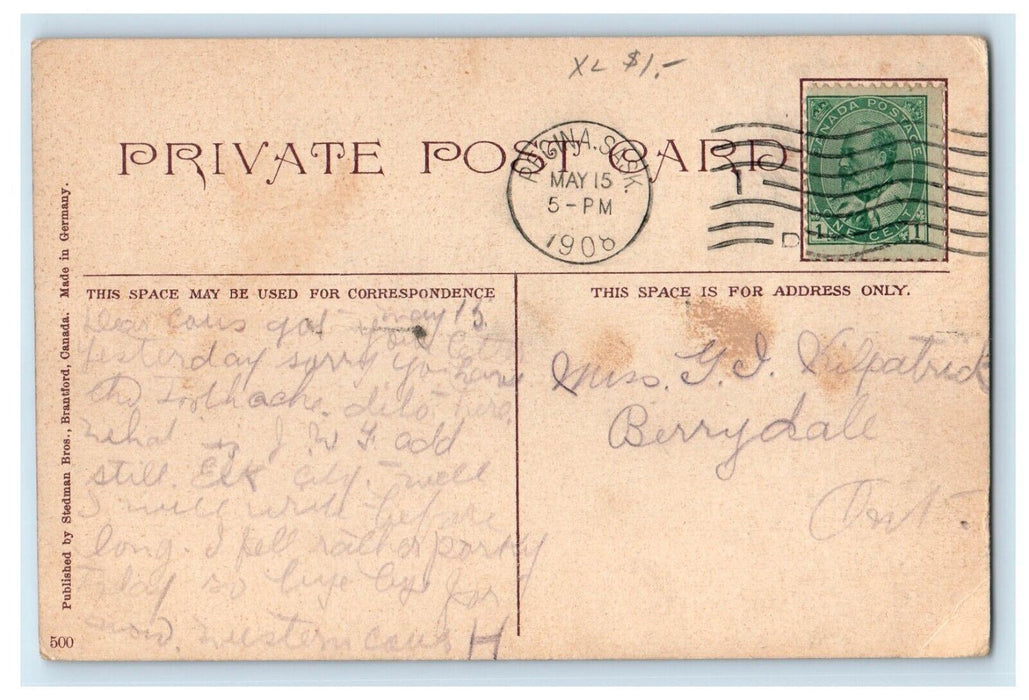 XL $1.-
PRIVATE POST CARD
REGINA. SASK.
MAY 15
5-PM
1908
CANADA POSTAGE
1 ONE CENT 1
THIS SPACE MAY BE USED FOR CORRESPONDENCE
THIS SPACE IS FOR ADDRESS ONLY.
Dear cous got your
may 15
yesterday sorry you have
the toothache. dito here
what is J W F add
still. Elk City. well
I will write before
long. I fell rather
today so bye bye for
now. western cous H
Miss. G. I. Kilpatrick
Berrydale
Ont.
Published by Stedman Bros., Brantford, Canada. Made in Germany.
500